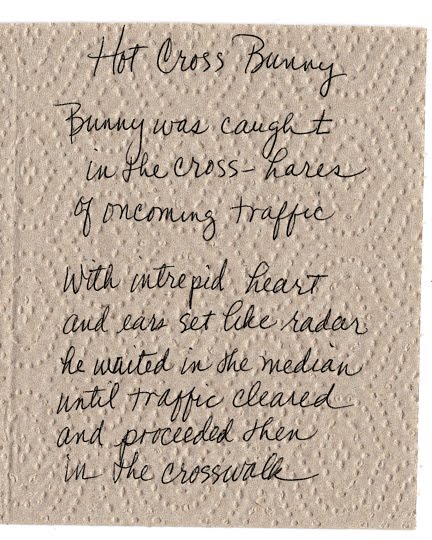 Hot Cross Bunny
Bunny was caught
in the cross-hares
of oncoming traffic
With intrepid heart
and ears set like radar
he waited in the median
until traffic cleared
and proceeded then
in the crosswalk